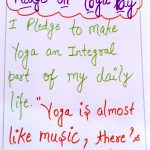 Pledge on Yoga Day
I Pledge to make
Yoga an Integral
part of my daily
life. "Yoga is almost
like music, there's